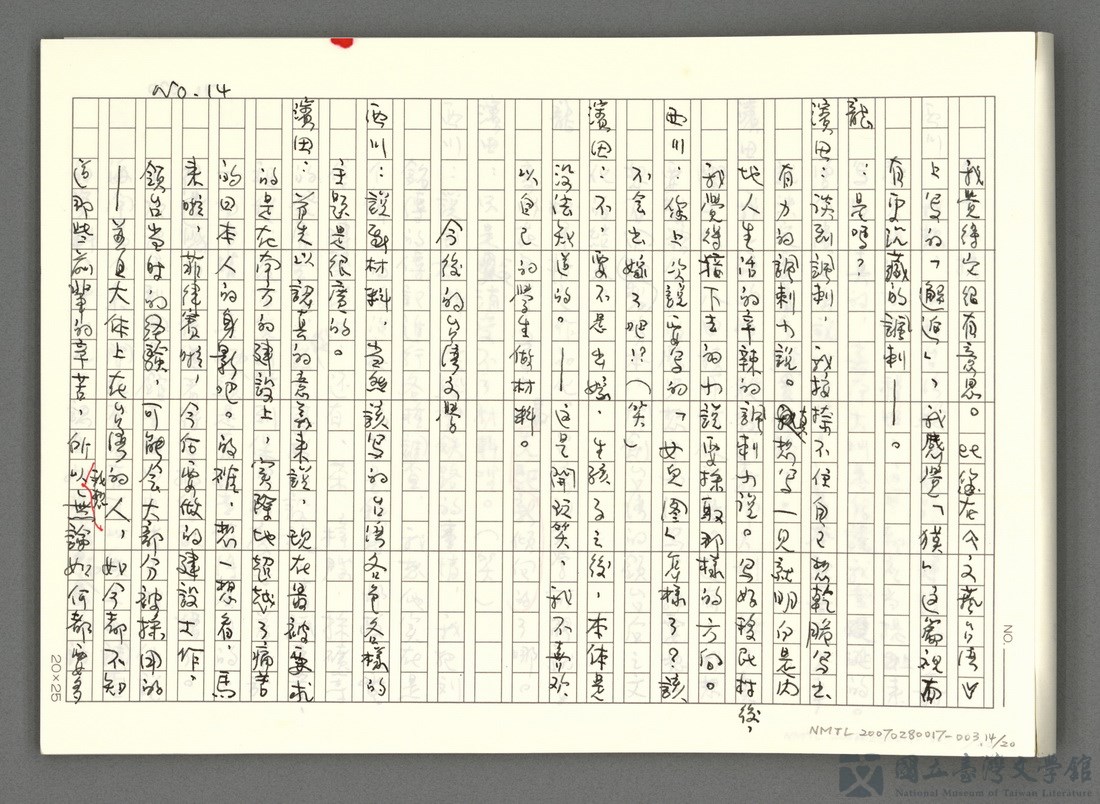 No. 14
我覺得它很有意思。比從在《文藝台湾》
上写的「邂逅」，我感覺「獏」这篇視面
有更沉藏的諷刺——。
龍　：是嗎？
濱田：談到諷刺，我按捺不住自己想乾脆写出
有力的諷刺小説。真想写一見就明白是内
地人生活的辛辣的諷刺小説。写好移民村後，
我覺得接下去的小説要採取那樣的方向。
西川：你上次説要写的「女兒圖」怎樣了？該
不会出嫁了吧!?（笑）
濱田：不，要不是出嫁，生孩子之後，本体是
没法知道的。——这是開玩笑，我不喜欢
以自己的學生做材料。
今後的台湾文學
西川：説到材料，当然該写的台湾各色各樣的
主題是很廣的。
濱田：首先以認真的意義来説，現在最被要求
的是在南方的建設上，实際地超越了痛苦
的日本人的身影吧。的確，想一想看，馬
来啦，菲律賓啦，今后要做的建設工作，
領台当时的経験，可能会大部分被採用的
——並且大体上在台湾的人，如今都不知
道那些前輩的辛苦，所以我想無論如何都要多
20×25
NO.
NMTL 20070280017-003.14/20
國立臺灣文學館
National Museum of Taiwan Literature